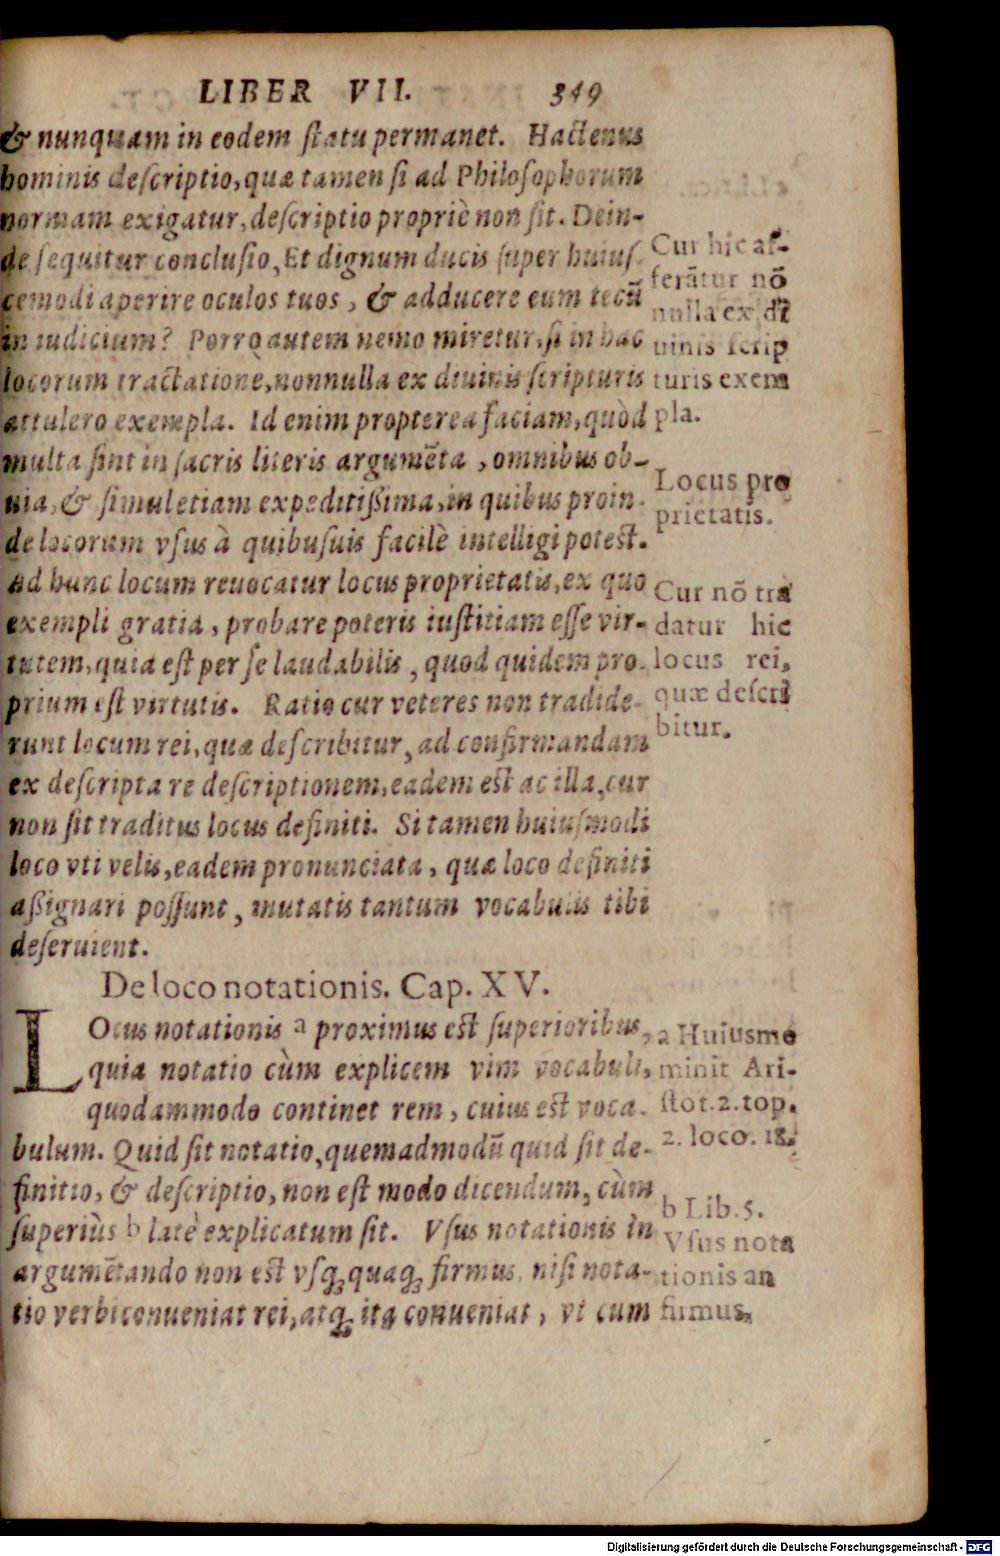 LIBER VII. 349
& nunquam in eodem ſtatu permanet. Hactenus
hominis deſcriptio, quæ tamen ſi ad Philoſophorum
normam exigatur, deſcriptio propriè non ſit. Dein-
de ſequitur concluſio, Et dignum ducis ſuper huiuſ-
cemodi aperire oculos tuos, & adducere eum tecū
in iudicium? Porrò autem nemo miretur, ſi in hac
locorum tractatione, nonnulla ex diuinis ſcripturis
attulero exempla. Id enim propterea faciam, quòd
multa ſint in ſacris literis argumēta, omnibus ob-
uia, & ſimul etiam expeditißima, in quibus proin-
de locorum vſus à quibuſuis facilè intelligi poteſt.
Ad hunc locum reuocatur locus proprietatis, ex quo
exempli gratia, probare poteris iuſtitiam eſſe vir-
tutem, quia eſt per ſe laudabilis, quod quidem pro-
prium eſt virtutis. Ratio cur veteres non tradide-
runt locum rei, quæ deſcribitur, ad confirmandam
ex deſcripta re deſcriptionem, eadem eſt ac illa, cur
non ſit traditus locus definiti. Si tamen huiuſmodi
loco vti velis, eadem pronunciata, quæ loco definiti
aßignari poſſunt, mutatis tantum vocabulis tibi
deſeruient.
Cur hic aſ-
ferātur nō
nulla ex di
uinis ſcrip
turis exem
pla.
Locus pro
prietatis.
Cur nō tra
datur hic
locus rei,
quæ deſcri
bitur.
De loco notationis. Cap. XV.
LOcus notationis a proximus eſt ſuperioribus,
quia notatio cùm explicem vim vocabuli,
quodammodo continet rem, cuius eſt voca-
bulum. Quid ſit notatio, quemadmodū quid ſit de-
finitio, & deſcriptio, non eſt modo dicendum, cùm
ſuperiùs b latè explicatum ſit. Vſus notationis in
argumētando non eſt vſq; quaq; firmus, niſi nota-
tio verbi conueniat rei, atq; ita conueniat, vt cum
a Huiusme
minit Ari-
ſtot. 2. top.
2. loco. 18.
b Lib. 5.
Vſus nota
tionis an
firmus.
Digitalisierung gefördert durch die Deutsche Forschungsgemeinschaft - DFG